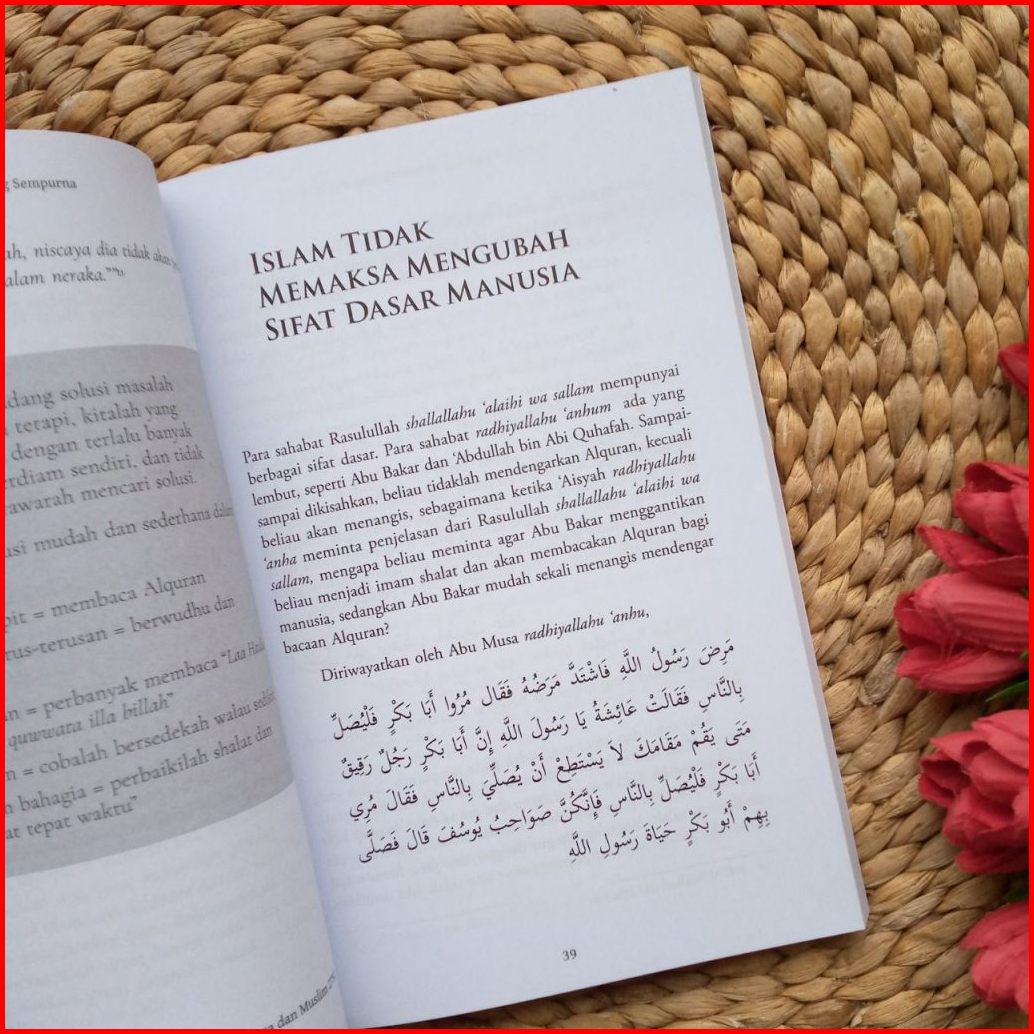 Sempurna
ah, niscaya dia tidak akan
alam neraka.""
dang solusi masalah
tetapi, kitalah yang
dengan terlalu banyak
rdiam sendiri, dan tidak
awarah mencari solusi.
si mudah dan sederhana dalam
pit = membaca Alquran
rus-terusan = berwudhu dan
n = perbanyak membaca "Laa
quwwara illa billah"
n = cobalah bersedekah walau
h bahagia = perbaikilah shalat dan
at tepat waktu"
dan Muslim
ISLAM TIDAK
MEMAKSA MENGUBAH
SIFAT DASAR MANUSIA
Para sahabat Rasulullah shallallahu 'alaihi wa sallam mempunyai
berbagai sifat dasar. Para sahabat radhiyallahu 'anhum ada yang
lembut, seperti Abu Bakar dan 'Abdullah bin Abi Quhafah. Sampai-
sampai dikisahkan, beliau tidaklah mendengarkan Alquran, kecuali
beliau akan menangis, sebagaimana ketika 'Aisyah radhiyallahu
'anha meminta penjelasan dari Rasulullah shallallahu 'alaihi wa
sallam, mengapa beliau meminta agar Abu Bakar menggantikan
beliau menjadi imam shalat dan akan membacakan Alquran bagi
manusia, sedangkan Abu Bakar mudah sekali menangis mendengar
bacaan Alquran?
Diriwayatkan oleh Abu Musa radhiyallahu 'anhu,
مَرِضَ رَسُولُ اللَّهِ فَاشْتَدَّ مَرَضُهُ فَقَالَ مُرُوا أَبَا بَكْرٍ فَلْيُصَلِّ
بِالنَّاسِ فَقَالَتْ عَائِشَةُ يَا رَسُولَ اللَّهِ إِنَّ أَبَا بَكْرٍ رَجُلٌ رَقِيقٌ
مَتَى يَقُمْ مَقَامَكَ لاَ يَسْتَطِعْ أَنْ يُصَلِّيَ بِالنَّاسِ فَقَالَ مُرِي
أَبَا بَكْرٍ فَلْيُصَلِّ بِالنَّاسِ فَإِنَّكُنَّ صَوَاحِبُ يُوسُفَ قَالَ فَصَلَّى
بِهِمْ أَبُو بَكْرٍ حَيَاةَ رَسُولِ اللَّهِ
39